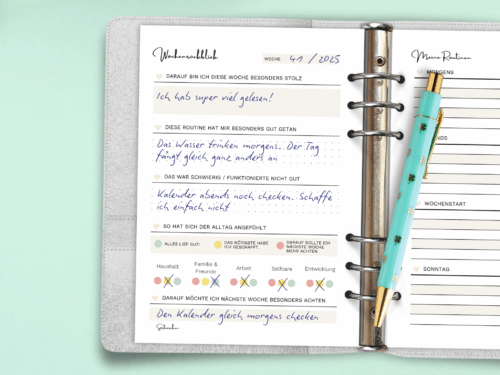 Wochenrückblick
WOCHE 41 / 2025
DARAUF BIN ICH DIESE WOCHE BESONDERS STOLZ
Ich hab super viel gelesen!
DIESE ROUTINE HAT MIR BESONDERS GUT GETAN
Das Wasser trinken morgens. Der Tag
fängt gleich ganz anders an
DAS WAR SCHWIERIG / FUNKTIONIERTE NICHT GUT
Kalender abends noch checken. Schaffe
ich einfach nicht
SO HAT SICH DER ALLTAG ANGEFÜHLT
ALLES LIEF GUT!
DAS NÖTIGSTE HABE
ICH GESCHAFFT.
DARAUF SOLLTE ICH
NÄCHSTE WOCHE
MEHR ACHTEN
Haushalt
Familie &
Freunde
Arbeit
Selfcare
Entwicklung
DARAUF MÖCHTE ICH NÄCHSTE WOCHE BESONDERS ACHTEN
Den Kalender gleich morgens checken
Meine Routinen
MORGENS
WOCHENSTART
SONNTAG